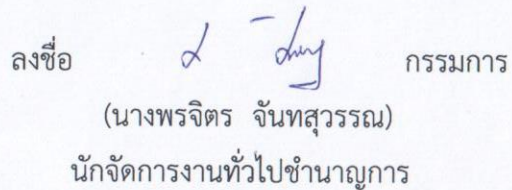 ลงชื่อ กรรมการ
(นางพรจิตร จันทสุวรรณ)
นักจัดการงานทั่วไปชำนาญการ